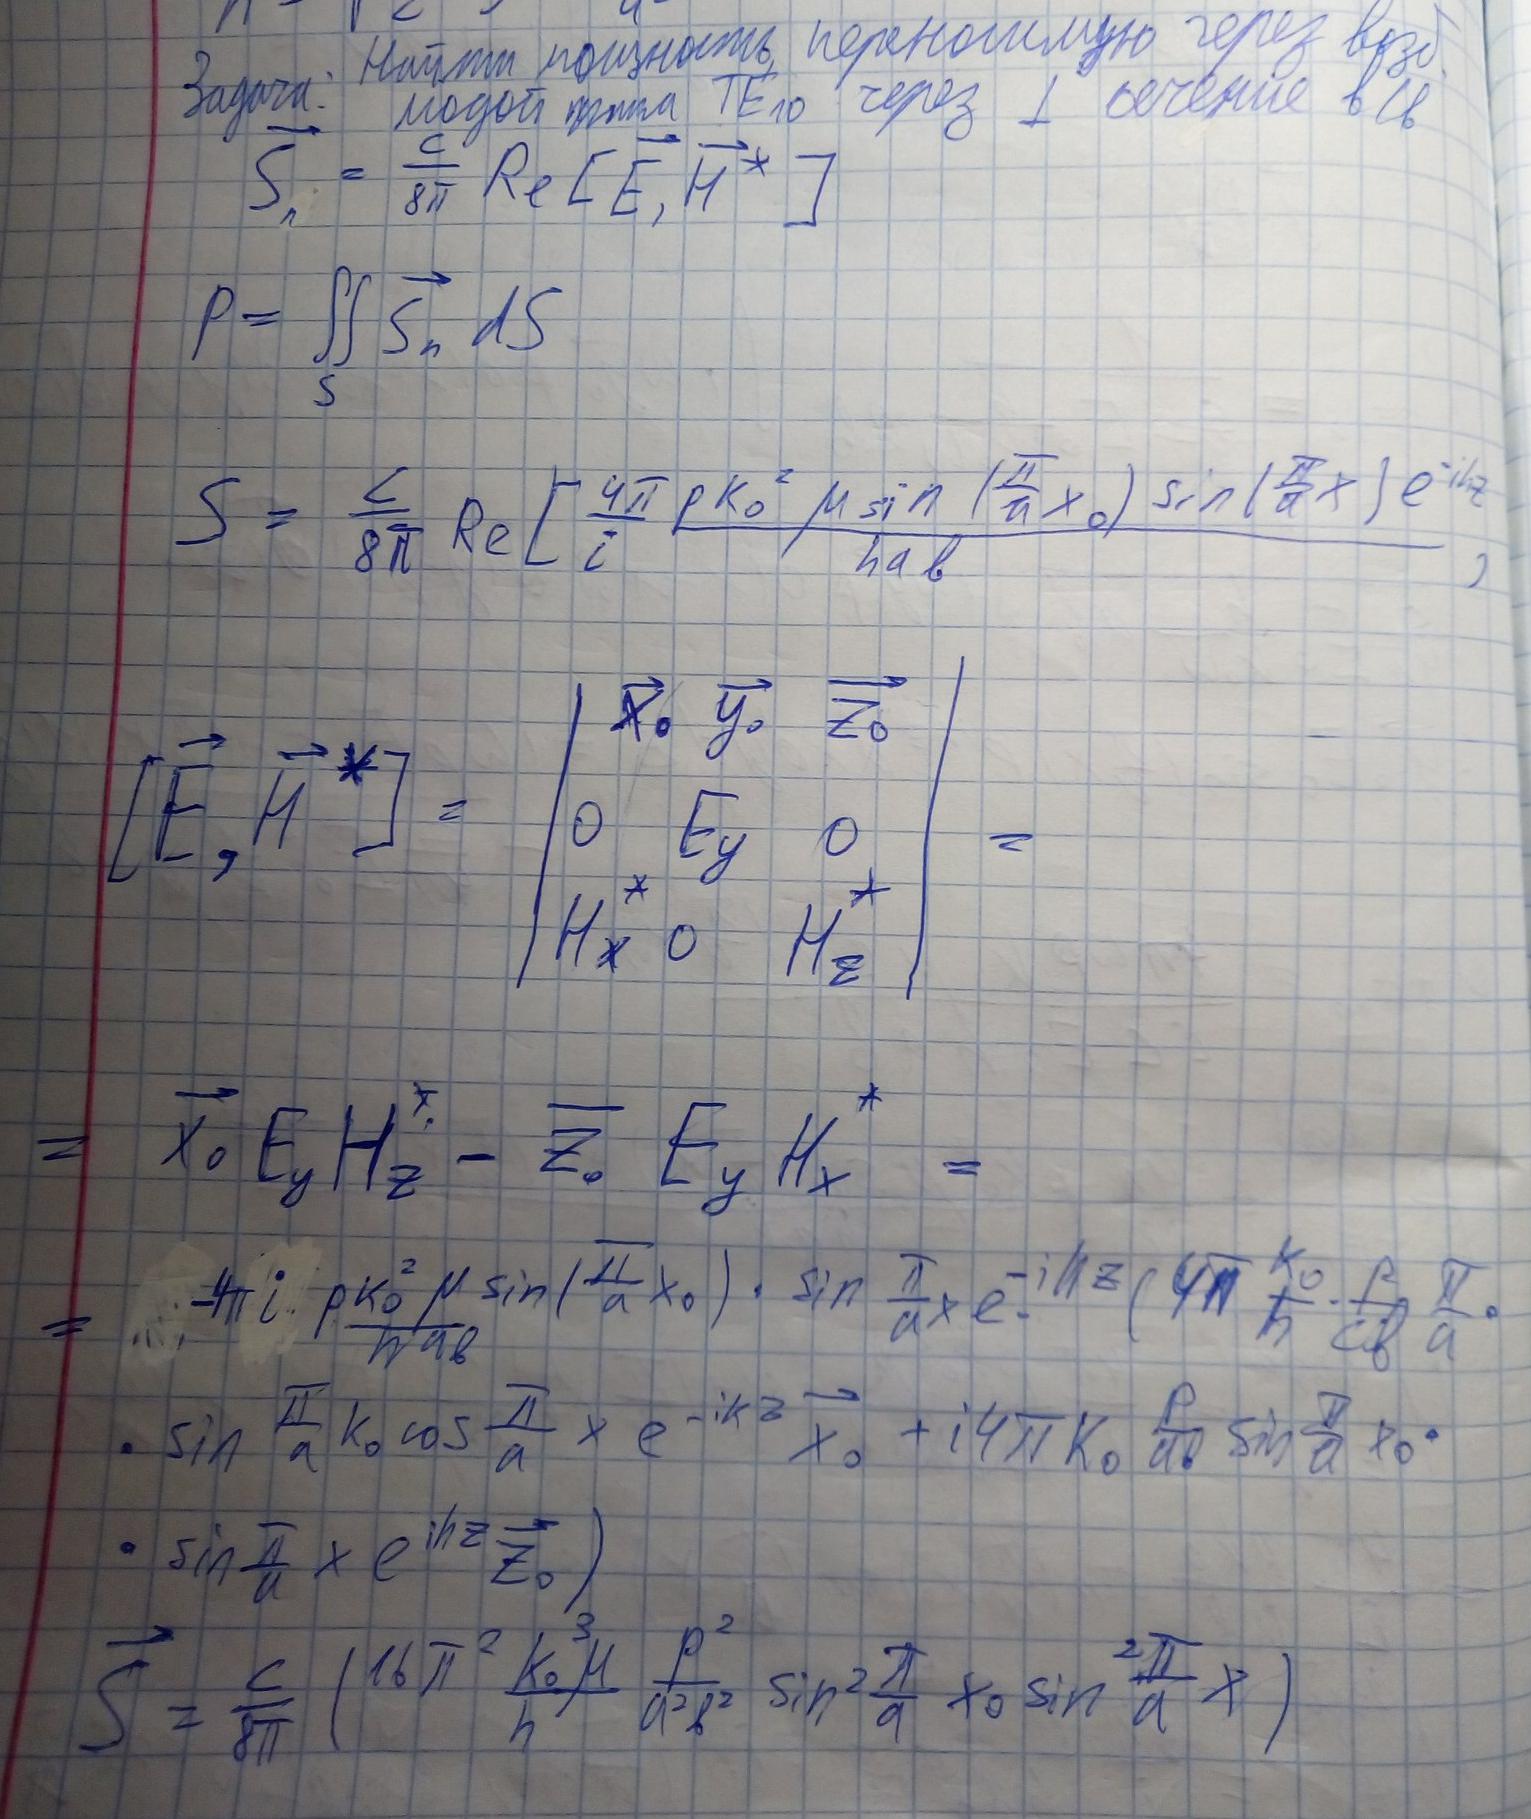 Задача: Найти мощность, переносимую через возб.
модой типа TE₁₀ через ⊥ сечение в св
S⃗ₙ = c/8π Re[E⃗, H⃗*]
P = ∬_S S⃗ₙ dS
S = c/8π Re[4π/i pk₀²μ sin(π/a x₀) sin(π/a x) e^(-ihz) / haв ,
[E⃗, H⃗*] = | x⃗₀ y⃗₀ z⃗₀ |
| 0 E_y 0 | =
| H_x* 0 H_z* |
= x⃗₀ E_y H_z* - z̄₀ E_y H_x* =
= -4π i p k₀²μ/haв sin(π/a x₀) · sin π/a x e^(-ihz) (4π k₀/h · p/aв π/a ·
· sin π/a k₀ cos π/a x e^(-ikz) x⃗₀ + i4πk₀ p/aв sin π/a x₀ ·
· sin π/a x e^(ihz) z⃗₀)
S⃗ = c/8π (16π² k₀³μ/h p²/a²в² sin² π/a x₀ sin² π/a x)